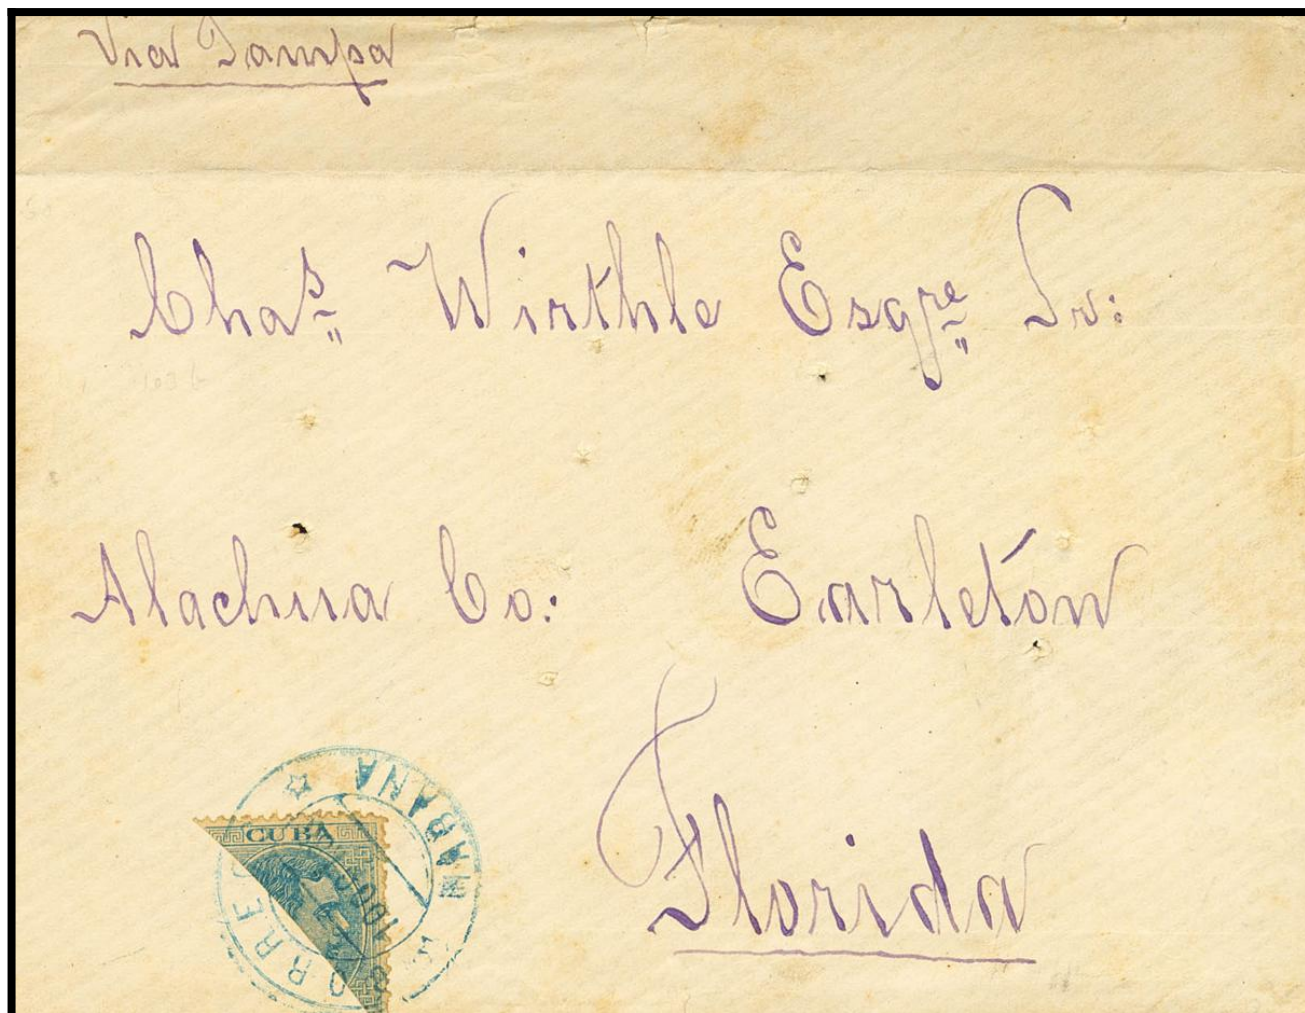 Via Tampa
Chas Wirthle Esqre Sr:
Alachua Co: Earleton
Florida
CUBA
CORREOS HABANA